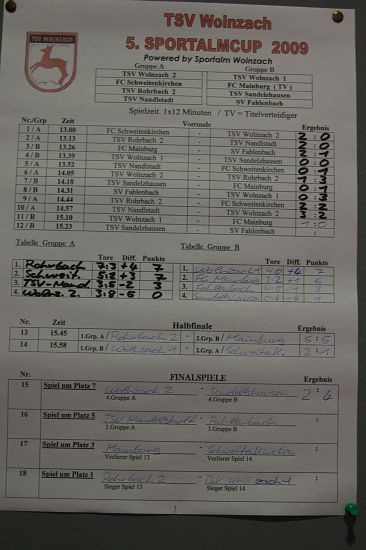 TSV Wolnzach
5. SPORTALMCUP 2009
Powered by Sportalm Wolnzach
TSV WOLNZACH
Gruppe A Gruppe B
TSV Wolnzach 2 TSV Wolnzach 1
FC Schweitenkirchen FC Mainburg ( TV )
TSV Rohrbach 2 TSV Sandelzhausen
TSV Nandlstadt SV Fahlenbach
Spielzeit 1x12 Minuten / TV = Titelverteidiger
Nr./Grp Zeit Vorrunde Ergebnis
1 / A 13.00 FC Schweitenkirchen - TSV Wolnzach 2 2 : 0
2 / A 13.13 TSV Rohrbach 2 - TSV Nandlstadt
3 / B 13.26 FC Mainburg - SV Fahlenbach 2 : 1
4 / B 13.39 TSV Wolnzach 1 - TSV Sandelzhausen
5 / A 13.52 TSV Nandlstadt - FC Schweitenkirchen
6 / A 14.05 TSV Wolnzach 2 - TSV Rohrbach 2 1 : 3
7 / B 14.18 TSV Sandelzhausen - FC Mainburg 0 : 1
8 / B 14.31 SV Fahlenbach - TSV Wolnzach 1
9 / A 14.44 TSV Rohrbach 2 - FC Schweitenkirchen 2 : 2
10 / A 14.57 TSV Nandlstadt - TSV Wolnzach 2 3 : 2
11 / B 15.10 TSV Wolnzach 1 - FC Mainburg 1 : 0
12 / B 15.23 SV Fahlenbach - TSV Sandelzhausen
Tabelle Gruppe A Tabelle Gruppe B
Tore Diff. Punkte Tore Diff. Punkte
1. Rohrbach 7:3 +4 7 1. Wolnzach 1 4:0 +4 7
2. Schweit. 5:2 +3 7 2. FC Mainburg 3:2 +1 6
3. TSV-Nand. 3:5 -2 3 3. Fahlenbach
4. Wolnz. 2. 3:8 -5 0 4. Sandelzhausen
Nr. Zeit Halbfinale Ergebnis
13 15.45 1.Grp. A / Rohrbach 2 - 2.Grp. B / Mainburg 6 : 5
14 15.58 1.Grp. B / Wolnzach 1 - 2.Grp. A / 2 : 1
Nr. FINALSPIELE Ergebnis
15 Spiel um Platz 7 Wolnzach 2 - Sandelzhausen 2 : 4
4.Gruppe A 4.Gruppe B
16 Spiel um Platz 5 TSV Nandelstadt - Fahlenbach :
3.Gruppe A 3.Gruppe B
17 Spiel um Platz 3 Mainburg - Schweitenkirchen :
Verlierer Spiel 13 Verlierer Spiel 14
18 Spiel um Platz 1 Rohrbach 2 - TSV Wolnzach 1 :
Sieger Spiel 13 Sieger Spiel 14